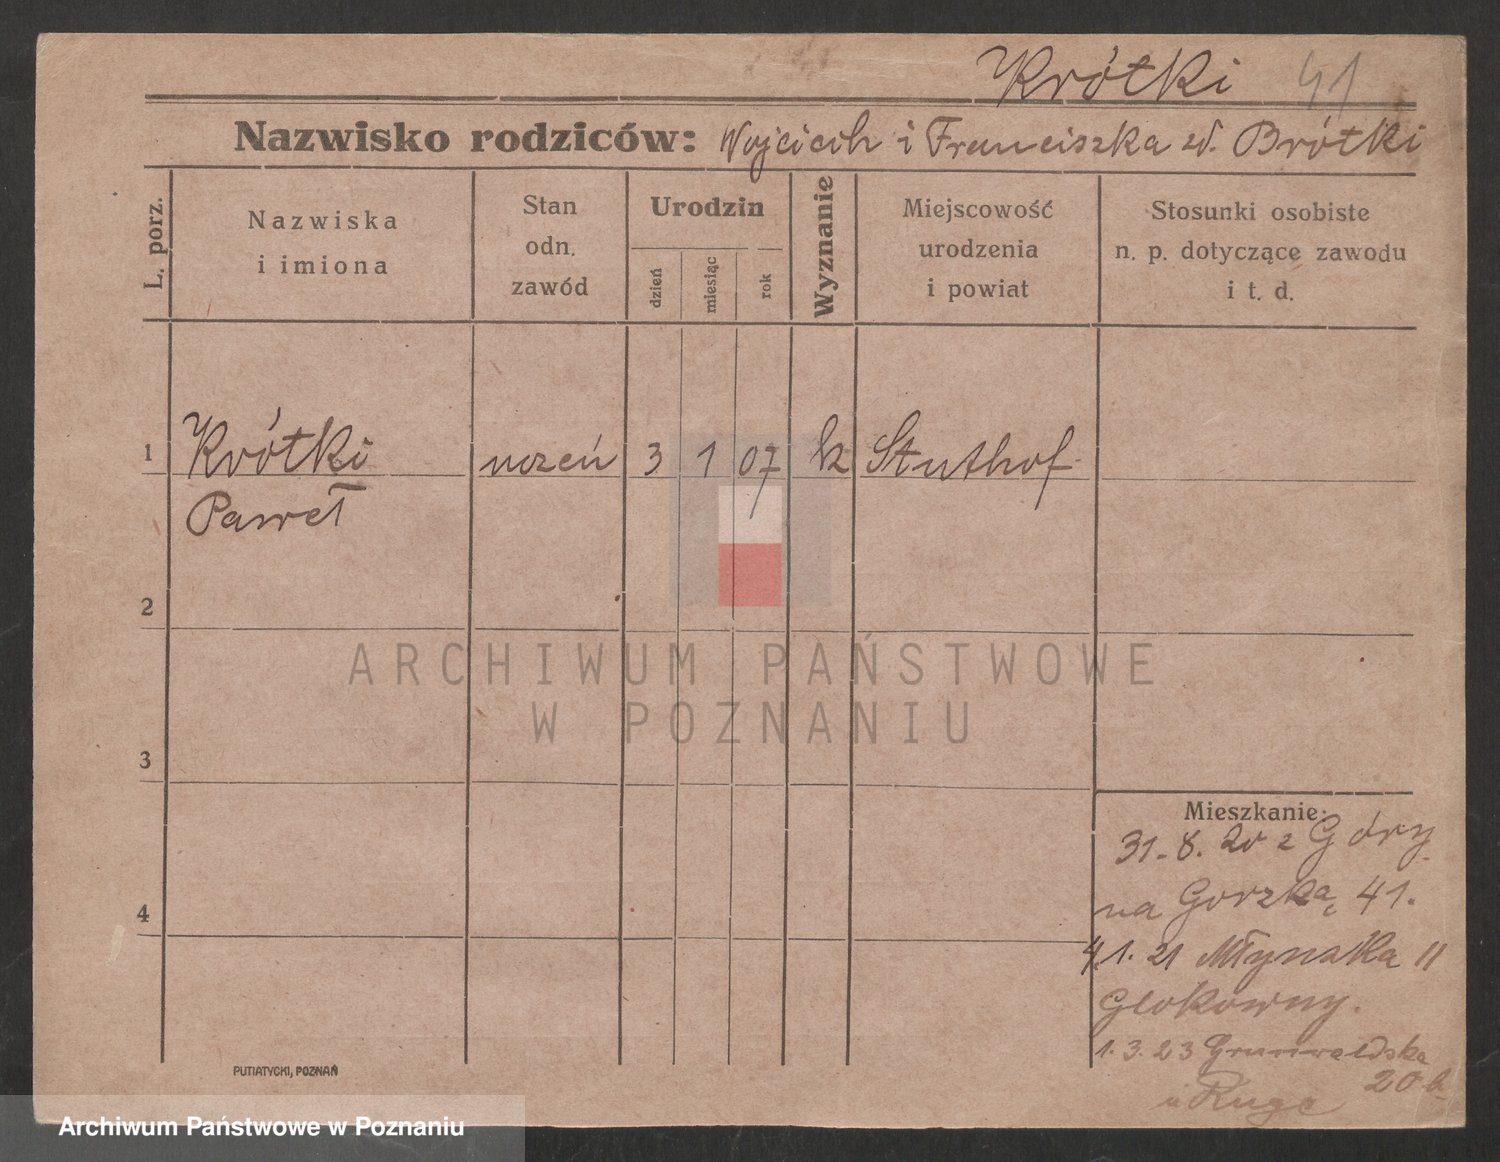 Krótki 41
Nazwisko rodziców: Wojciech i Franciszka zd. Brótki
L. porz.
Nazwiska
i imiona
Stan
odn.
zawód
Urodzin
dzień
miesiąc
rok
Wyznanie
Miejscowość
urodzenia
i powiat
Stosunki osobiste
n. p. dotyczące zawodu
i t. d.
1 Krótki uczeń 3 1 07 k Stuthof
Paweł
2
ARCHIWUM PAŃSTWOWE
W POZNANIU
3
4
Mieszkanie:
31. 8. 20 z Góry
na Gorzką 41.
4.1. 21 Młynska 11
Glokowny.
1. 3. 23 Grunwaldska
20 b
u Ruge
PUTIATYCKI, POZNAŃ
Archiwum Państwowe w Poznaniu